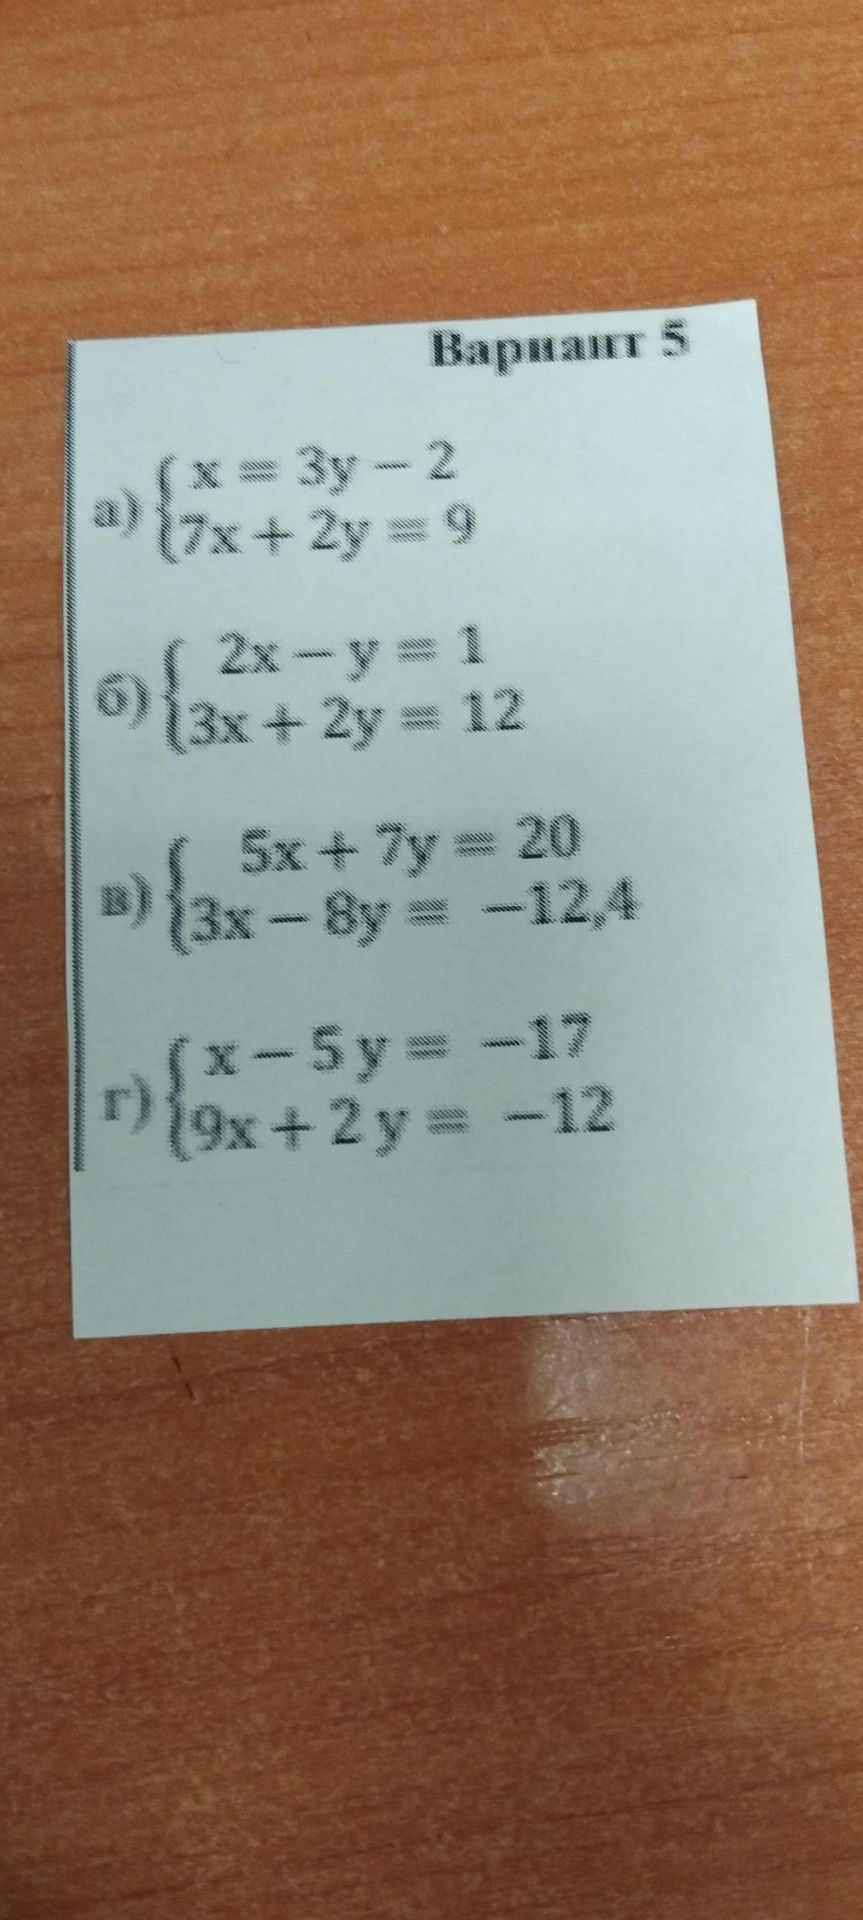 Вариант 5
а) { x = 3y − 2
7x + 2y = 9
б) { 2x − y = 1
3x + 2y = 12
в) { 5x + 7y = 20
3x − 8y = −12,4
г) { x − 5y = −17
9x + 2y = −12